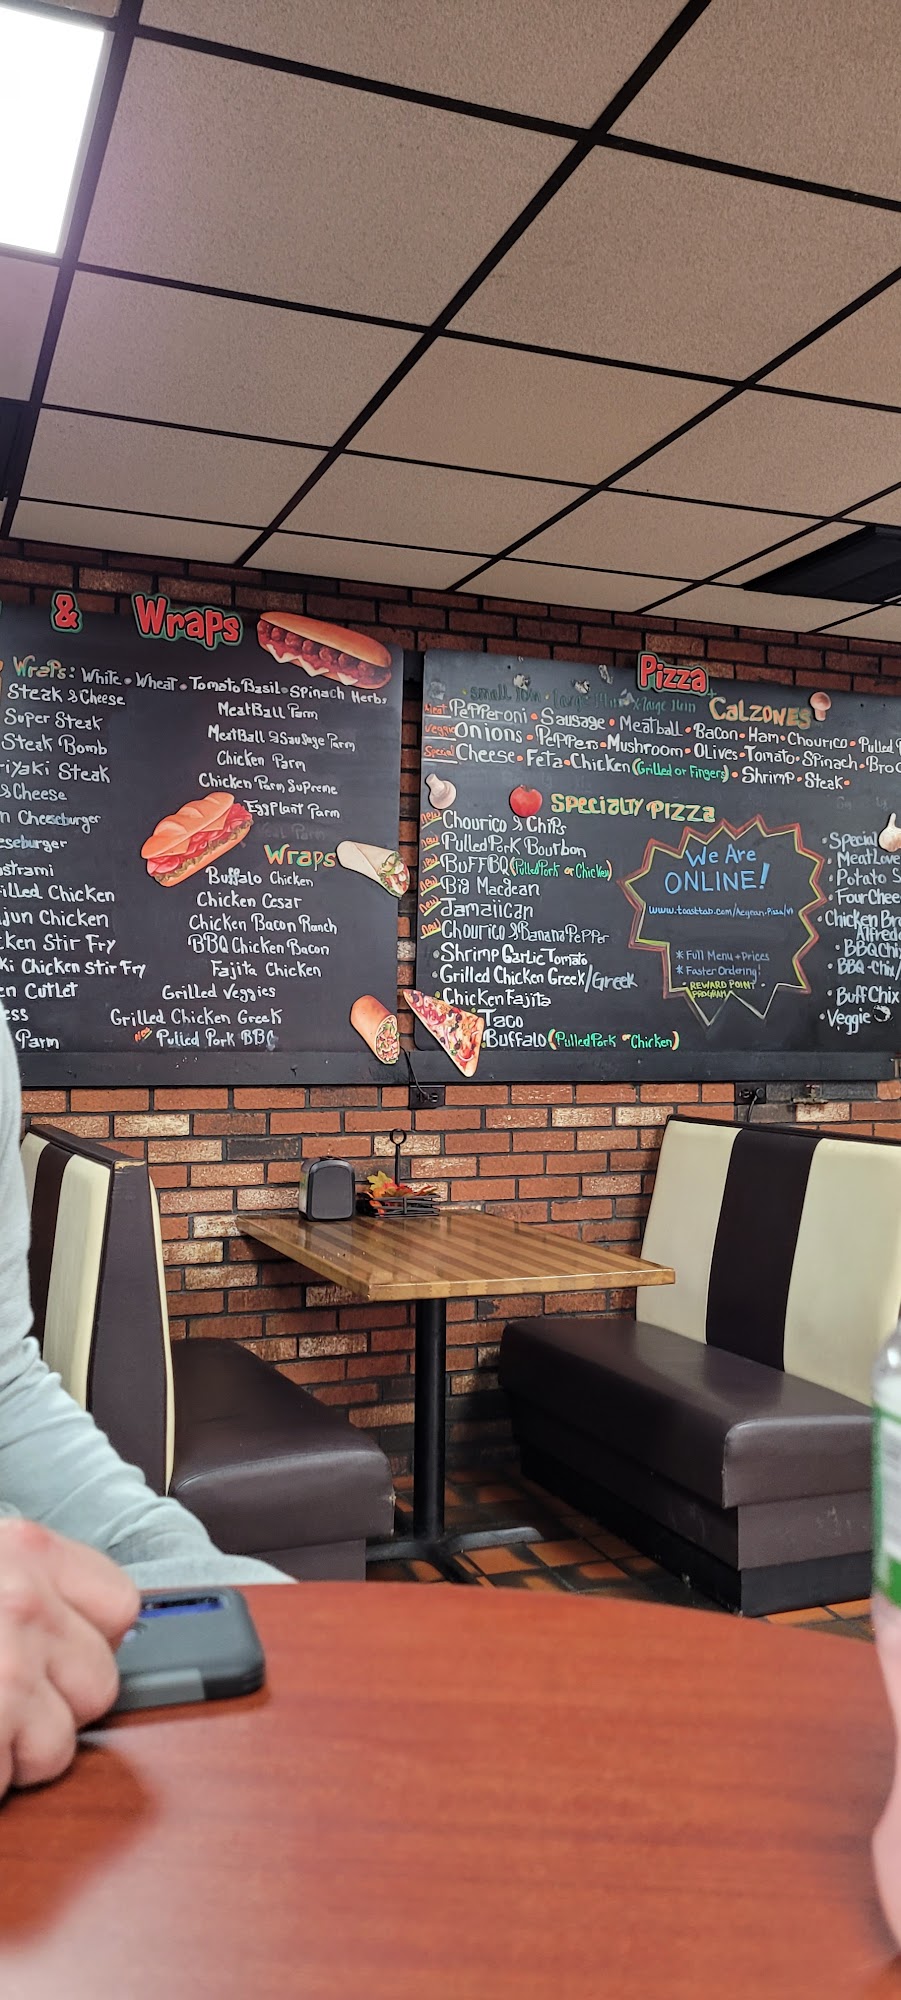 & Wraps
Wraps: White • Wheat • Tomato Basil • Spinach Herbs
Steak & Cheese
Super Steak
Steak Bomb
Steak
& Cheese
Cheeseburger
Chicken
Chicken
Stir Fry
Chicken Stir Fry
Cutlet
Parm
MeatBall Parm
MeatBall & Sausage Parm
Chicken Parm
Chicken Parm Supreme
EggPlant Parm
Wraps
Buffalo Chicken
Chicken Cesar
Chicken Bacon Ranch
BBQ Chicken Bacon
Fajita Chicken
Grilled Veggies
Grilled Chicken Greek
New Pulled Pork BBQ
Pizza
Calzones
Meat PePPeroni • Sausage • Meatball • Bacon • Ham • Chourico • Pulled
Veggie Onions • PePPers • Mushroom • Olives • Tomato • Spinach •
Special Cheese • Feta • Chicken (Grilled or Fingers) • Shrimp • Steak •
Specialty Pizza
new Chourico & Chips
new Pulled Pork Bourbon
new BuFFBQ (Pulled Pork or Chicken)
new Big Macgean
new Jamaiican
new Chourico & Banana Pepper
• Shrimp Garlic Tomato
• Grilled Chicken Greek/Greek
• Chicken Fajita
Taco
Buffalo (Pulled Pork or Chicken)
We Are
ONLINE!
* Full Menu + Prices
* Faster Ordering!
• REWARD POINT
PROGRAM
• Special
• Meat
• Potato
• Four
• Chicken
• Veggie